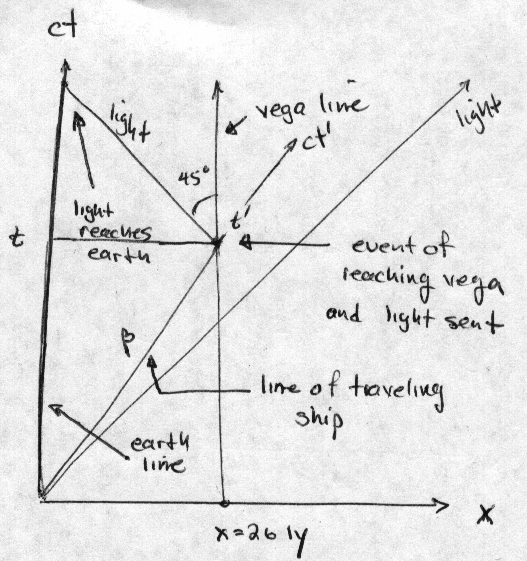 ct
light
vega line
light
ct'
45°
light
reaches
earth
t
t'
event of
reaching vega
and light sent
β
line of traveling
ship
earth
line
x
x=26 ly